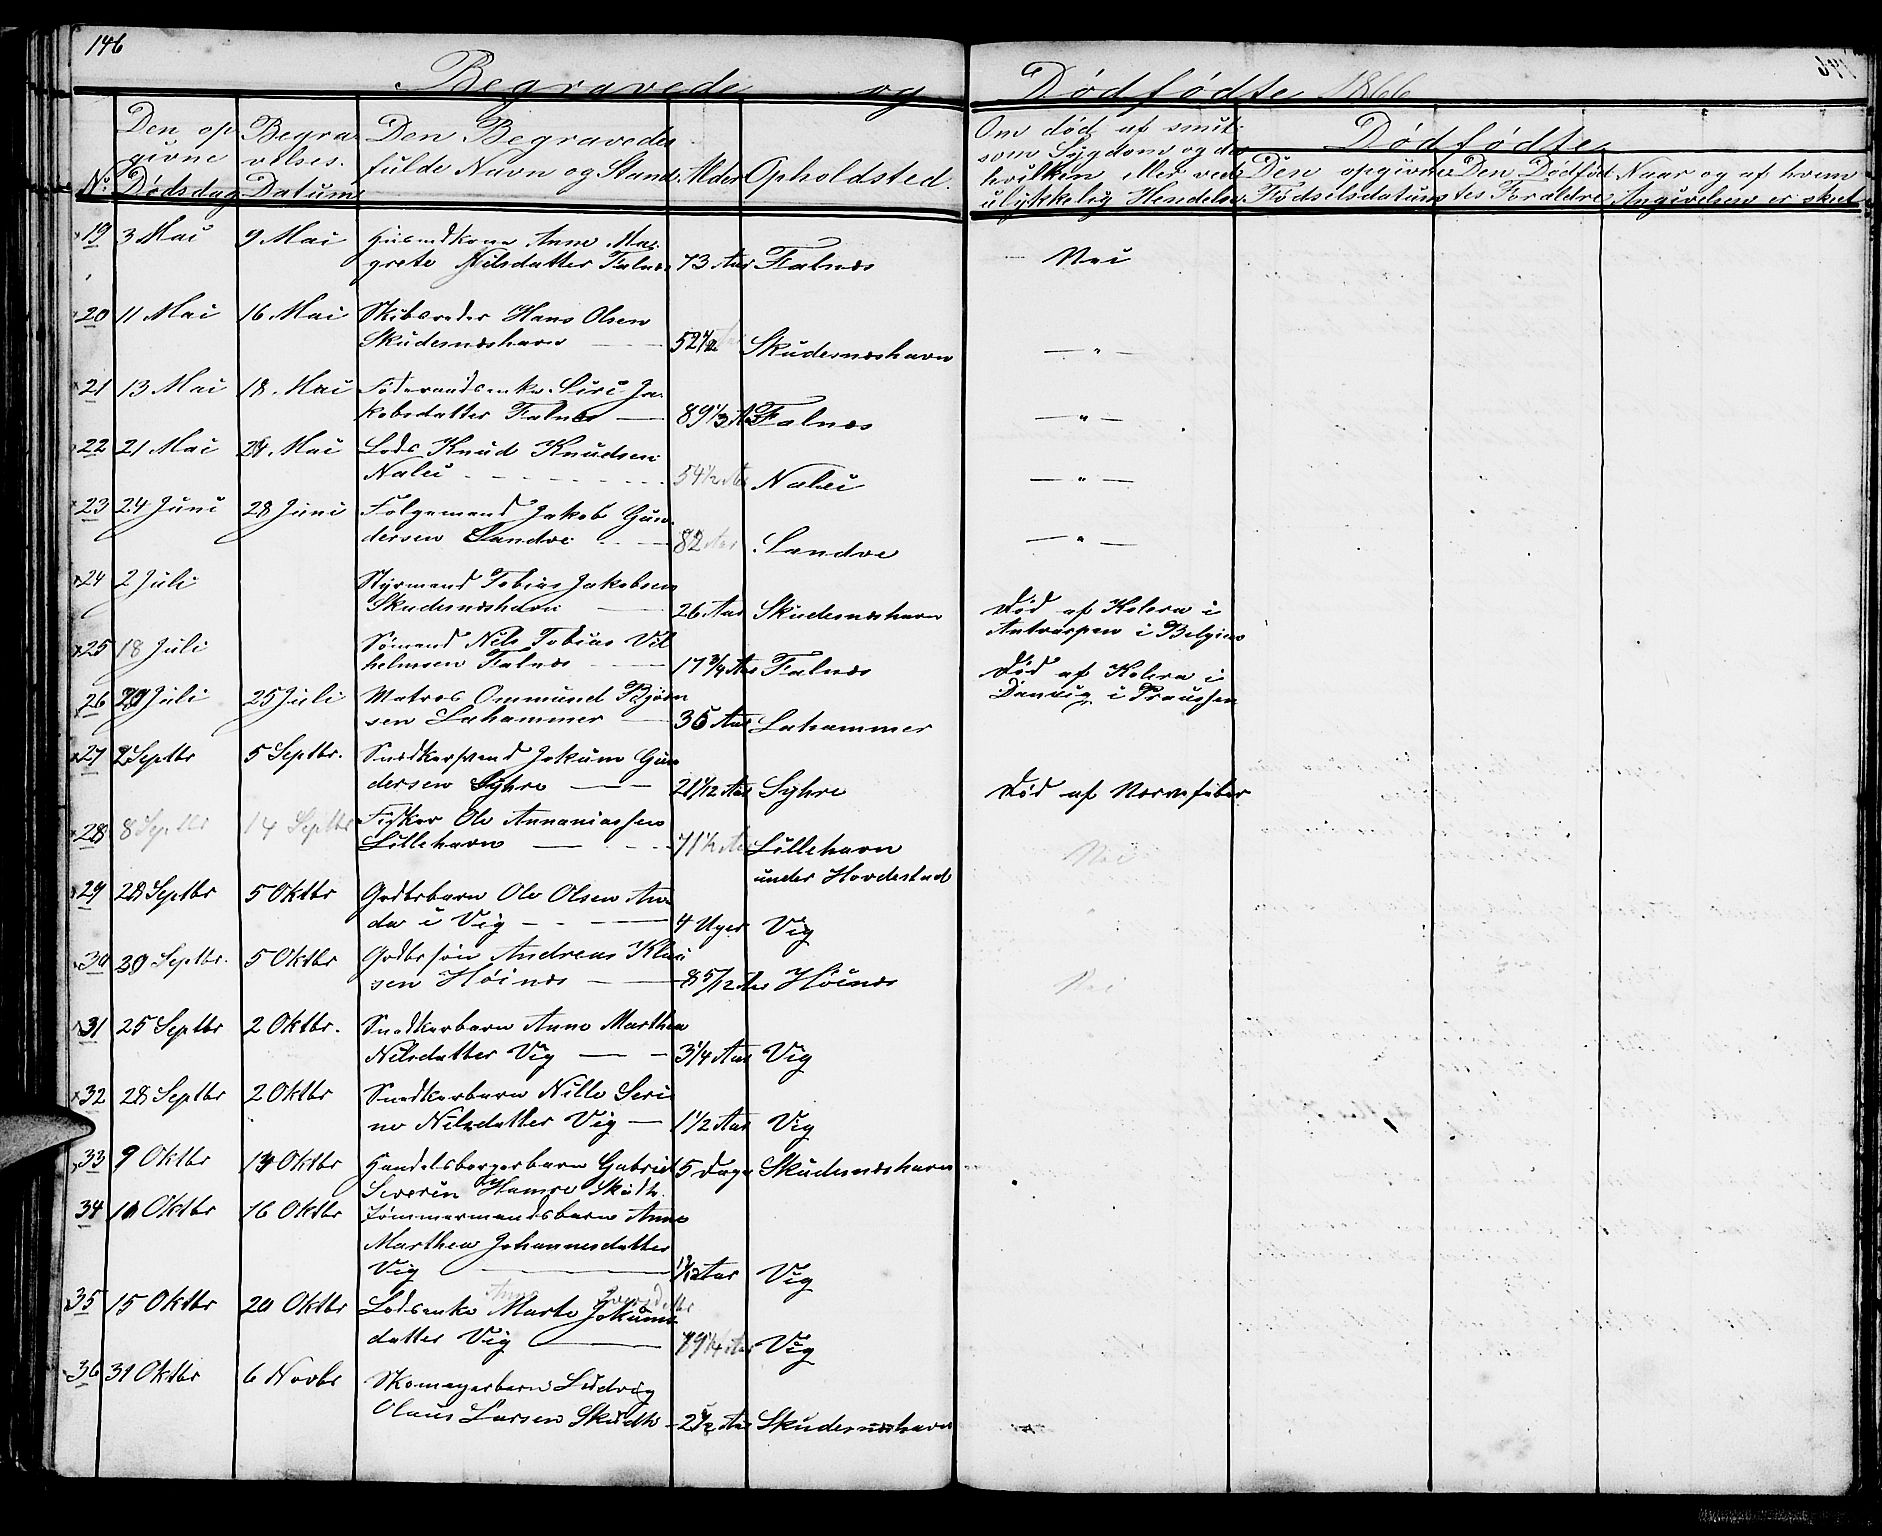 146
Begravede og Dødfødte 1866
No. Den opgivne Dødsdag Begravelses Datum Den Begravedes fulde Navn og Stand Alder Opholdsted. Om død af smitsom Sygdom og da hvilken eller ved ulykkelig Hendelse Dødfødte
Den opgivne Fødselsdatum Den Dødfødtes Forældre Naar og af hvem Angivelsen er skeet
19 3 Mai 9 Mai Husmdkone Anne Mar-
grete Nilsdatter Falnes 73 Aar Falnæs Nei
20 11 Mai 16 Mai Skibsreder Hans Olsen
Skudesnæshavn 52 1/2 Skudesnæshavn — " —
21 13 Mai 18 Mai Føderaadsenke Siri Ja-
kobsdatter Falnæs 89 1/3 Aar Falnæs — " —
22 21 Mai 28 Mai Lods Knud Knudsen
Nalei 54 1/2 Aar Nalei — " —
23 24 Juni 28 Juni Følgemand Jakob Gun-
dersen Sandve 82 Aar Sandve — " —
24 2 Juli Styrmand Tobias Jakobsen
Skudesnæshavn 26 Aar Skudesnæshavn Død af Kolera i
Antverpen i Belgien
25 18 Juli Sømand Nils Tobias Vil-
helmsen Falnæs 17 3/4 Aar Falnæs Død af Kolera i
Danzig i Preussen
26 20 Juli 25 Juli Matros Ommund Bjørn-
sen Lahammer 35 Aar Lahammer
27 2 Septbr 5 Septbr. Snedkersvend Jokum Gun-
dersen Syhre 21 1/12 Aar Syhre Død af Nervefeber
28 8 Septbr 14 Septbr Fisker Ole Annaniassen
Lillehavn 71 1/2 Aar Lillehavn Nei
under Hovdestad
29 28 Septbr 5 Oktbr Gdbrbarn Ole Olsen An-
da i Vig 4 Uger Vig "
30 30 Septbr. 5 Oktbr Gdbrsøn Andreas Klau-
sen Høinæs 8 5/12 Aar Høinæs Nei
31 25 Septbr 2 Oktbr. Snedkerbarn Anne Marthea
Nilsdatter Vig 3 1/4 Aar Vig
32 28 Septbr 2 Oktbr Snedkerbarn Nille Seri-
ne Nilsdatter Vig 1 1/2 Aar Vig
33 9 Oktbr 14 Oktbr Handelsborgerbarn Gabriel 5 Dage Skudesnæshavn
Severin Hamre Skudh.
34 10 Oktbr 16 Oktbr Tømmermandsbarn Anne
Marthea Johannesdatter
Vig 1/12 Aar Vig
35 15 Oktbr 20 Oktbr Lodsenke Marte Jokums-
datter Vig 79 1/4 Aar Vig
36 31 Oktbr 6 Novbr Skomagerbarn Ludvig
Olaus Larsen Skudh 2 1/2 Aar Skudesnæshavn